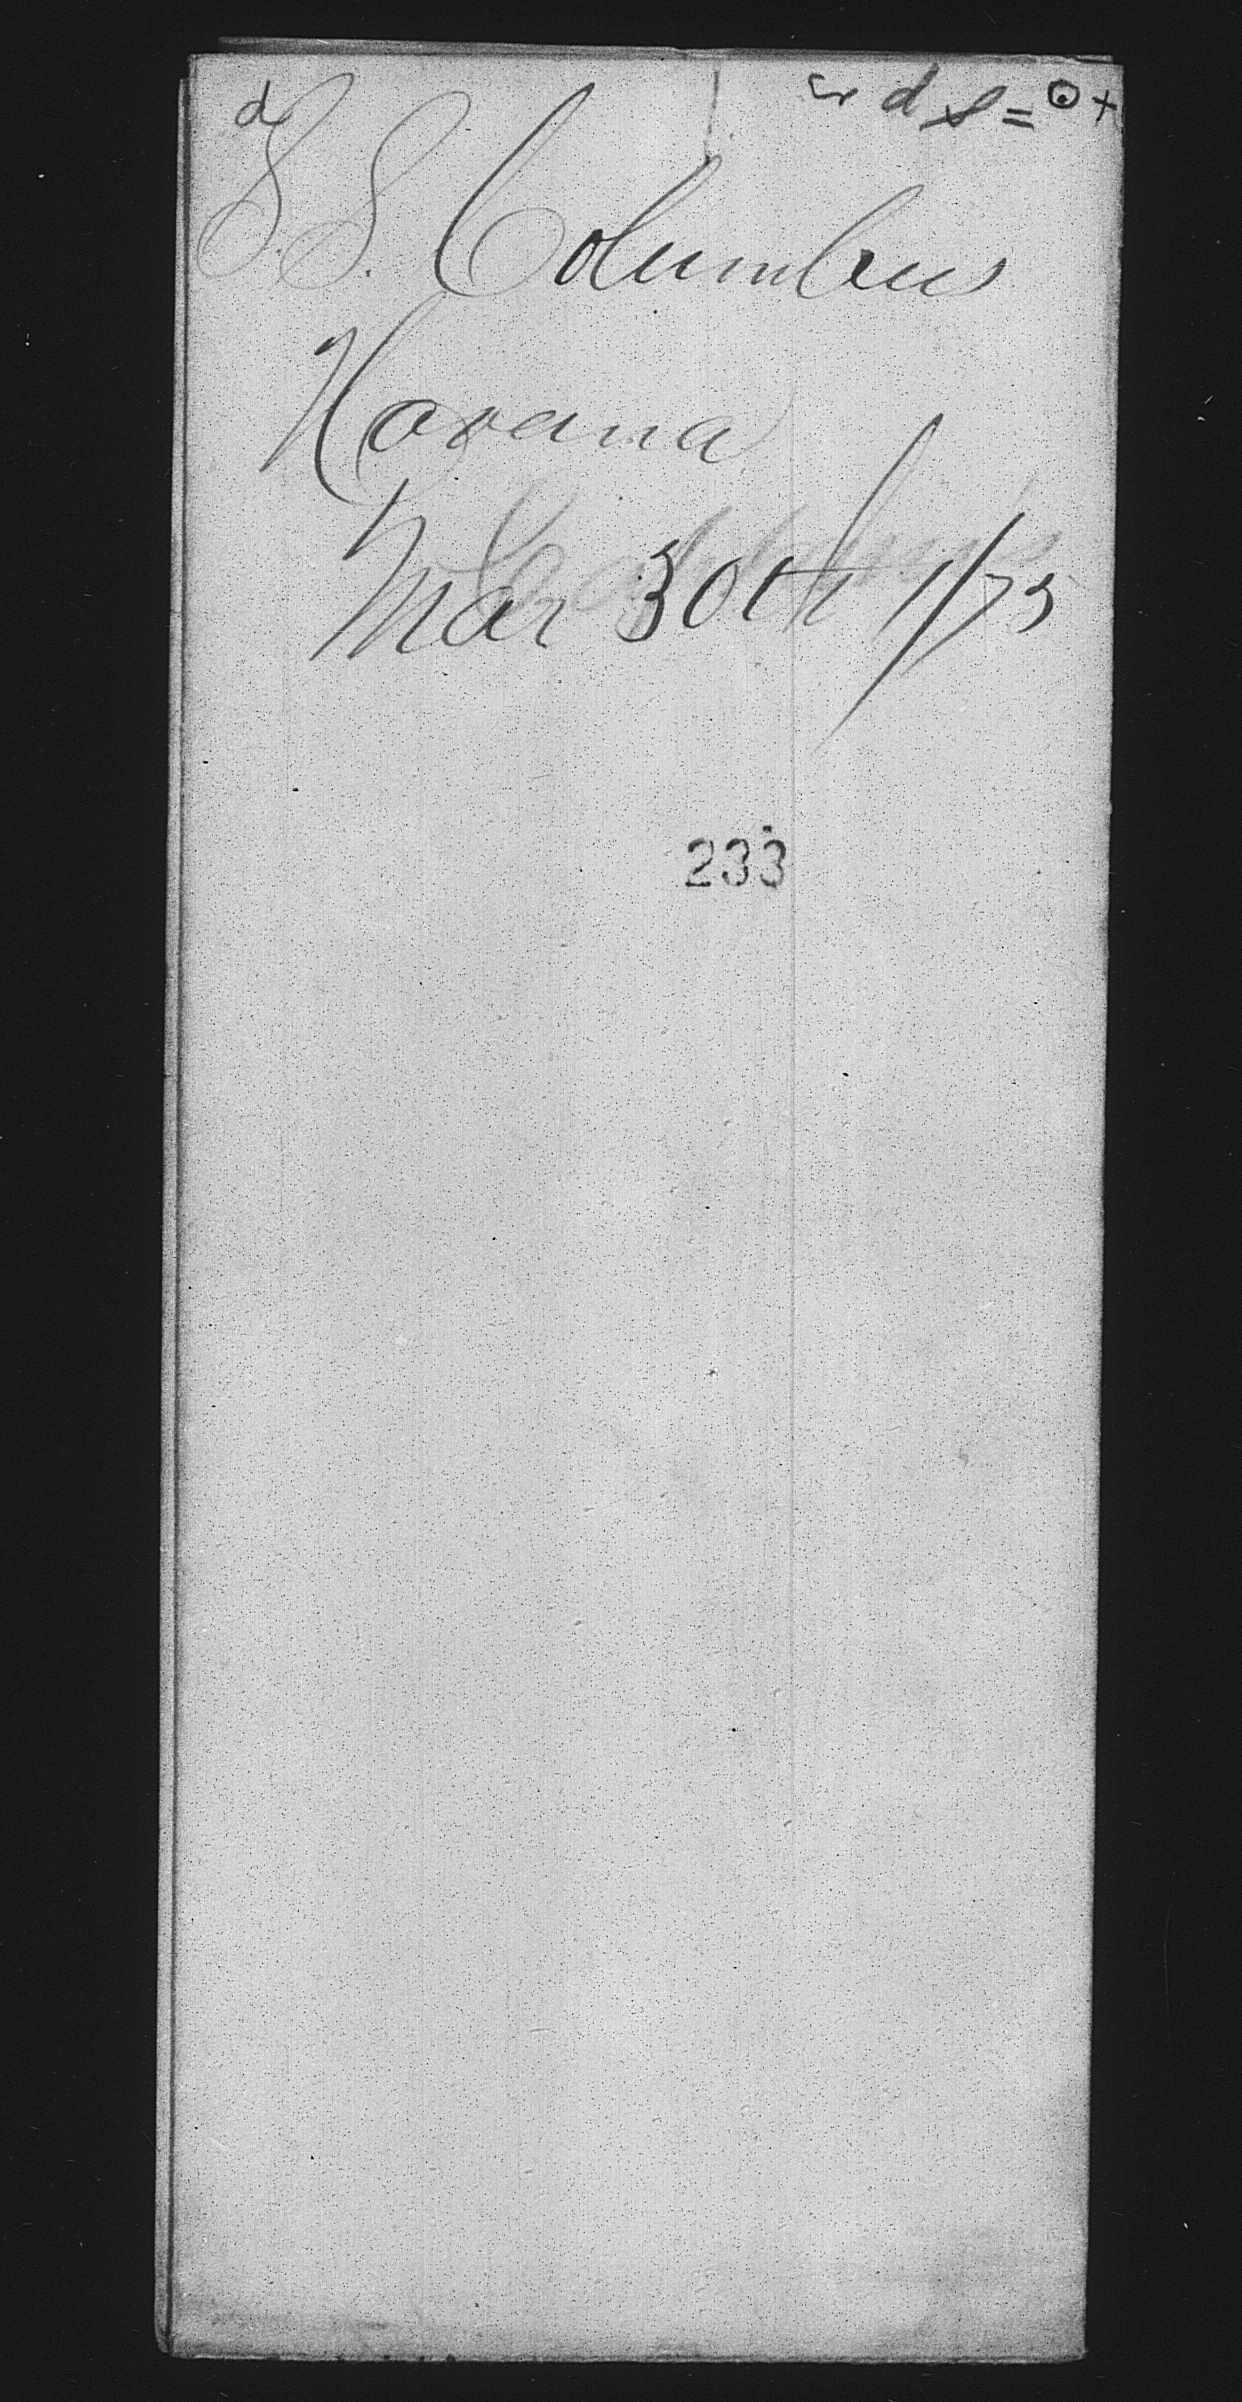 d
S.S. Columbus
Havana
Mar 30th /75
233